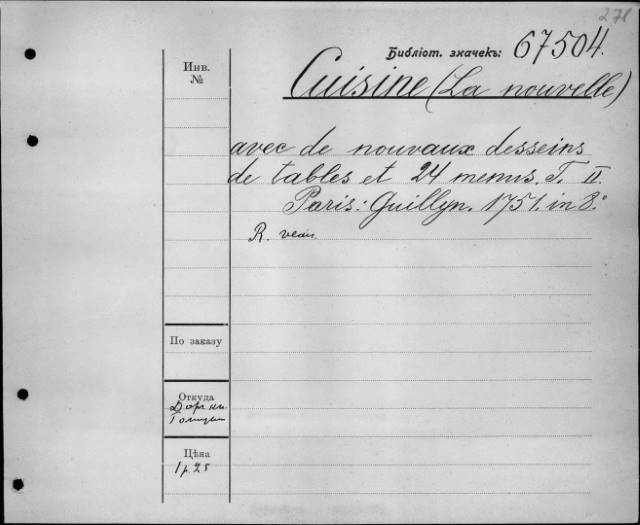 271
Библіот. значекъ: 67504.
Инв.
№
Cuisine (La nouvelle)
avec de nouvaux desseins
de tables et 24 menus. T. II.
Paris: Guillyn. 1751. in 8.º
R. veau.
По заказу
Откуда
Цѣна
1 р. 25